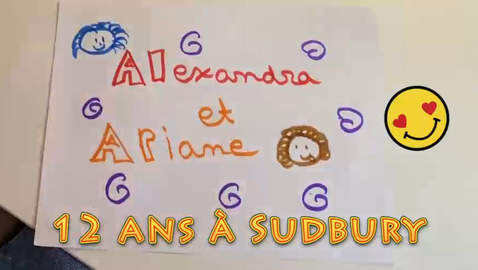 Alexandra
et
Ariane
12 ANS À SUDBURY